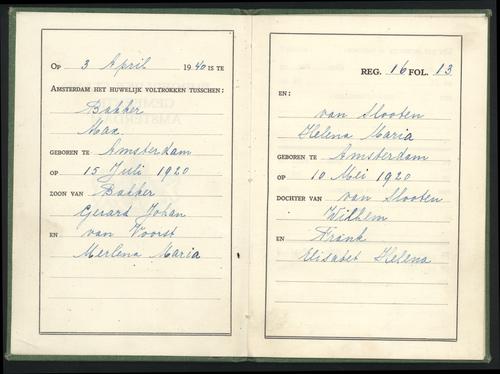 Op 3 April 1940 is te
Amsterdam het huwelijk voltrokken tusschen:
Bakker
Max.
geboren te Amsterdam
op 15 Juli 1920
zoon van Bakker
Gerard Johan
en van Voorst
Merlena Maria
Reg. 16 Fol. 13
en:
van Slooten
Helena Maria
geboren te Amsterdam
op 10 Mei 1920
dochter van van Slooten
Wilhem
en Frank
Elisabet Helena